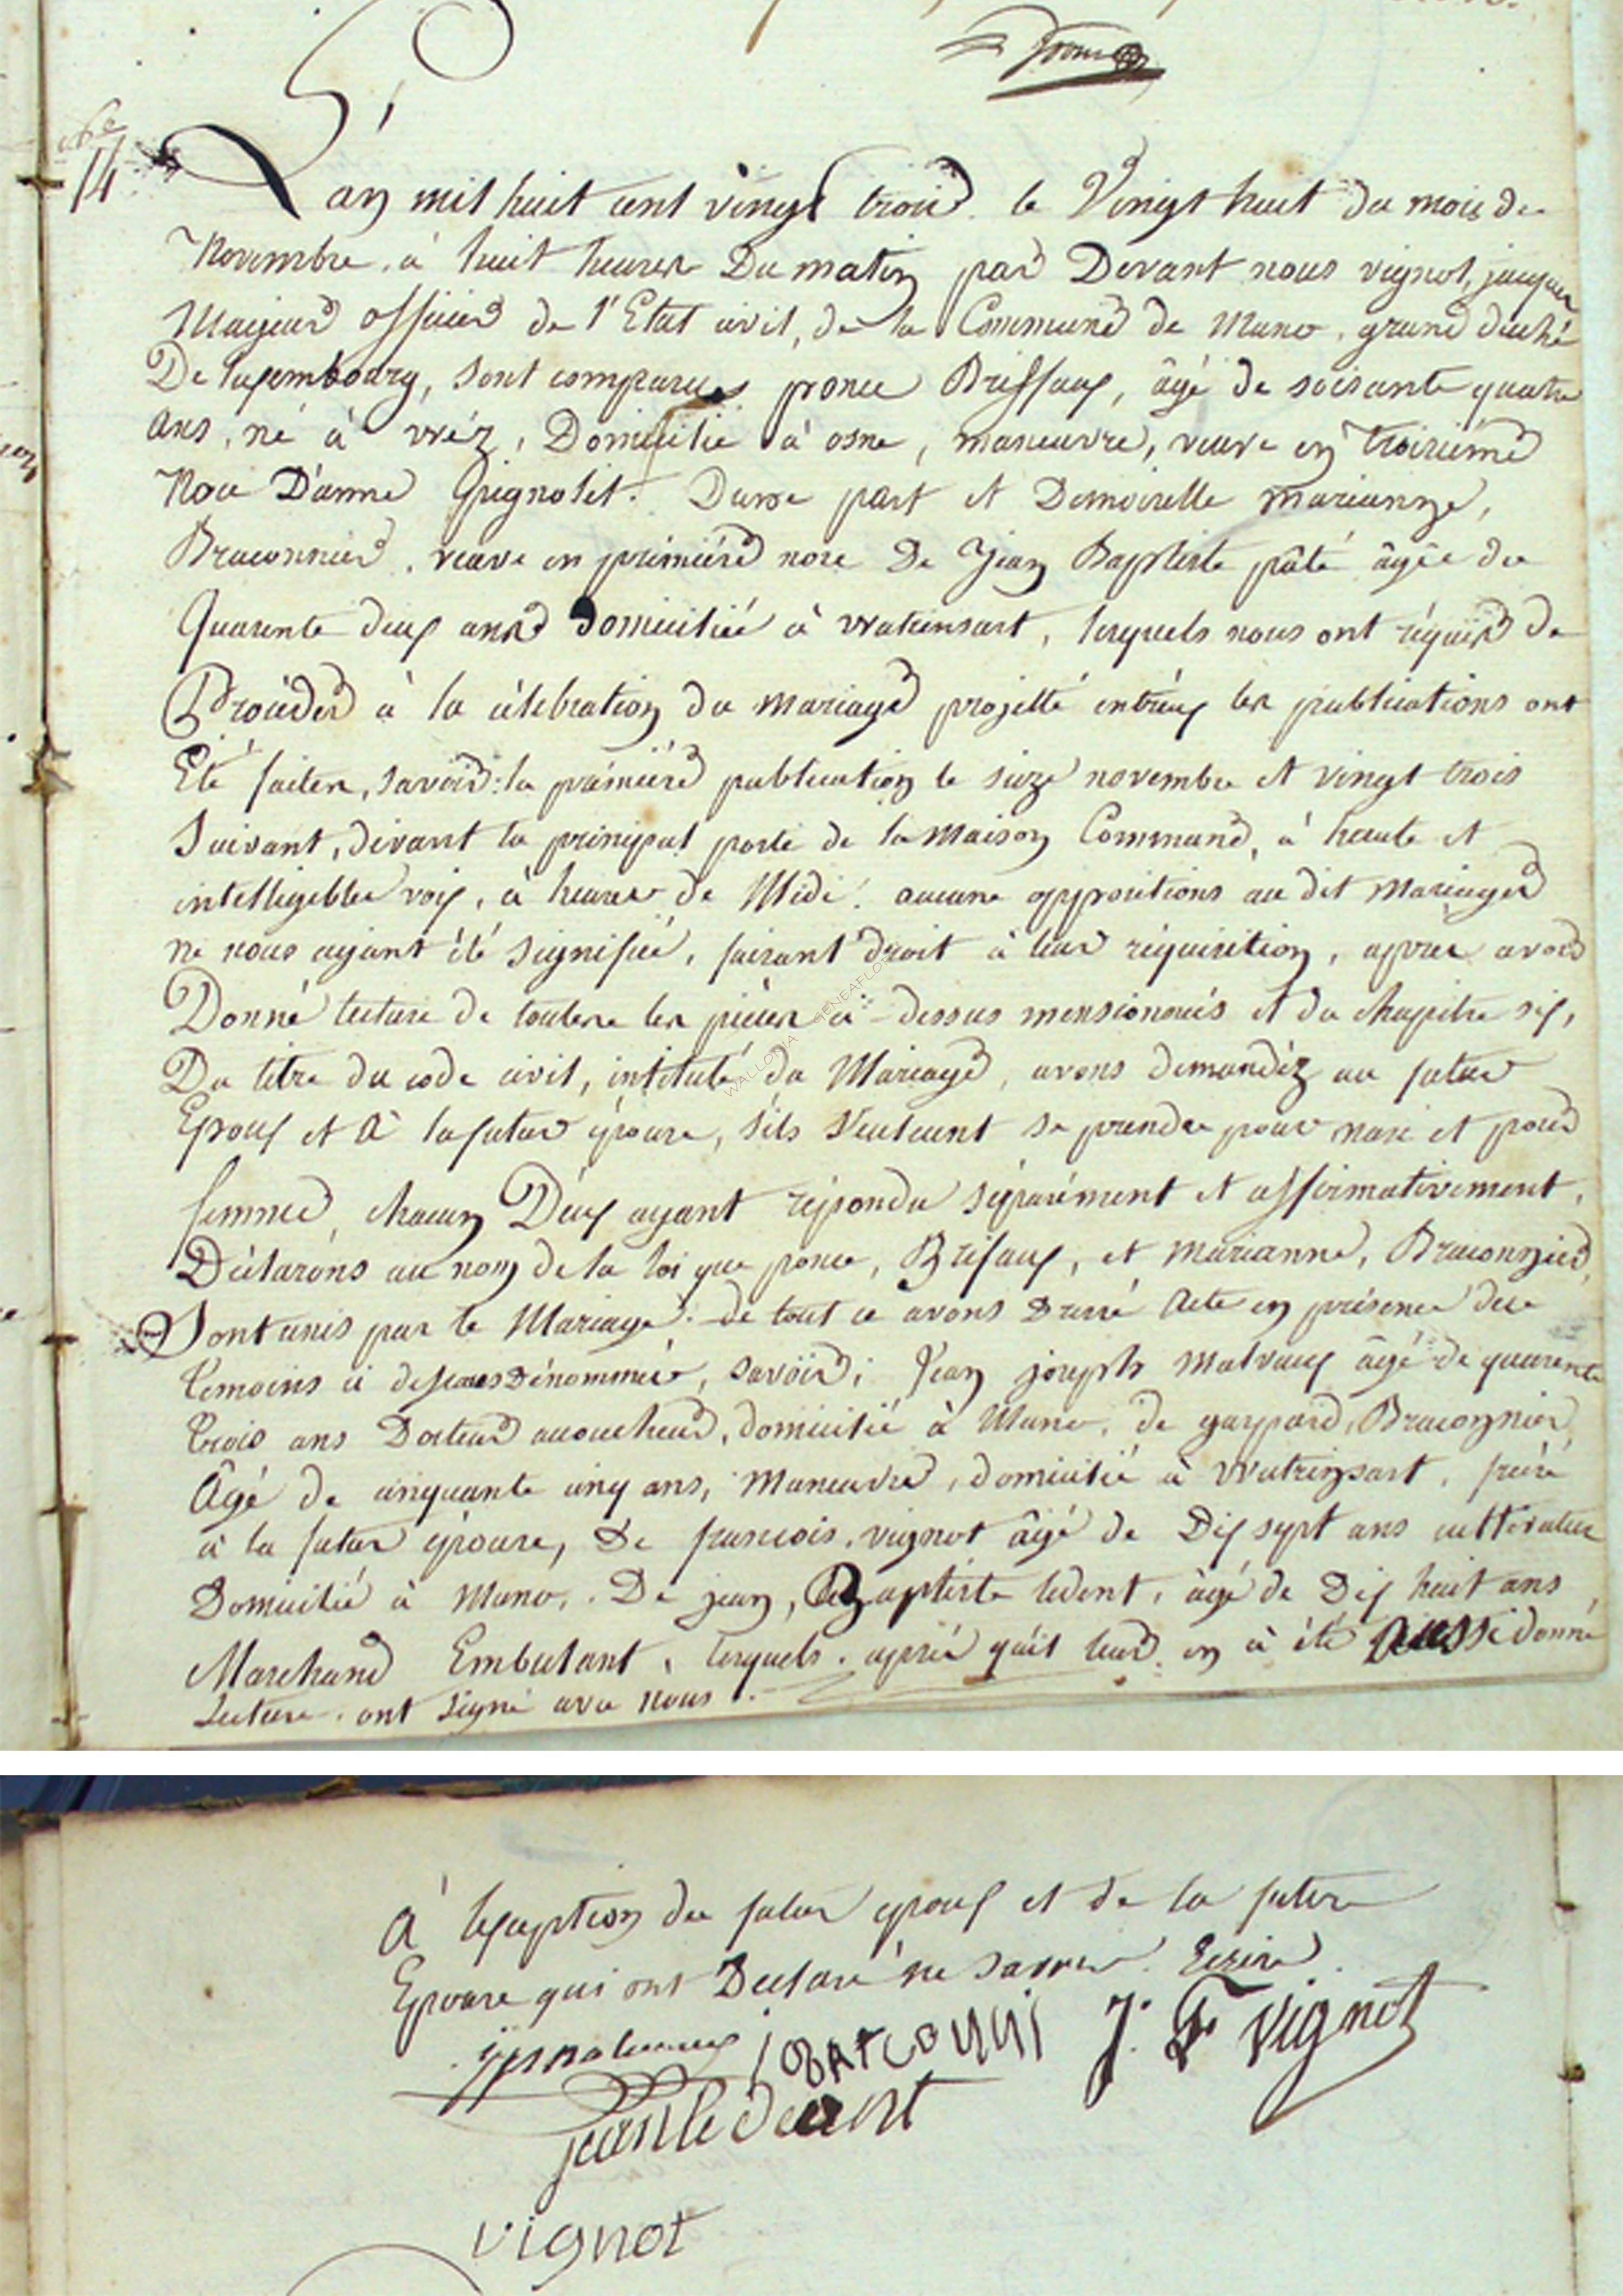 14
L'an mil huit cent vingt trois le Vingt huit du mois de
Novembre, à huit heures Du matin par Devant nous vignot, jacques
Mayeur officier de l'Etat civil, de la Commune de Muno, grand duché
De luxembourg, sont comparues ponce Brissaux, âgé de soisante quatre
ans, né à vréz, Domicilié à osne, maneuvre, veuve en troisième
Noce D'anne Grignolet. Dune part et Demoiselle marianne,
Braconnier, veuve en première nose De Jean Baptiste pâté âgée de
Quarente deux ans domiciliée à Watrinsart, lesquels nous ont réquis de
Procéder à la célebration du mariage projetté entreux les publications ont
Eté faites, savoir: la première publication le sieze novembre et vingt trois
Suivant, devant la principal porte de la Maison Commune, à haute et
intelligibles voix, à heures de Midi. aucune oppositions au dit Mariages
ne nous ayant été signifiée, faisant droit à leur réquisition, apres avoir
Donné lecture de toutes les pièces ci-dessus mensionnés et du chapitre six,
Du titre du code civil, intitulé du Mariage, avons demandéz au futur
Epoux et à la futur épouse, s'ils Veuleunt se prendre pour mari et pour
femme, chacun Deux ayant répondu séparément et affirmativement,
Déclarons au nom de la loi que ponce, Brisaux, et Marianne, Braconnier,
Sont unis par le Mariage. de tout ce avons Dressé Acte en présence des
temoins ci dessous Dénommés, savoir; Jean joseph Malvaux âgé de quarente
trois ans Docteur acoucheur, domicilié à Muno, de gaspard, Braconnier
Agé de cinquante cinq ans, Maneuvre, domicilié à Watrinsart, frère
à la futur épouse, De francois, vignot âgé de Dix sept ans cultivateur
Domicilié à Muno, De jean, Baptiste ledent, âgé de Dix huit ans
Marchand Embulant, lesquels, après quil leur en à été aussi donné
Lecture, ont signé avec nous.
WALLONIA GENEAFLOR
A lexception du futur epoux et de la future
Epouse qui ont Declaré ne savoir Ecrire.
J. F. vignot
jean le dent
vignot